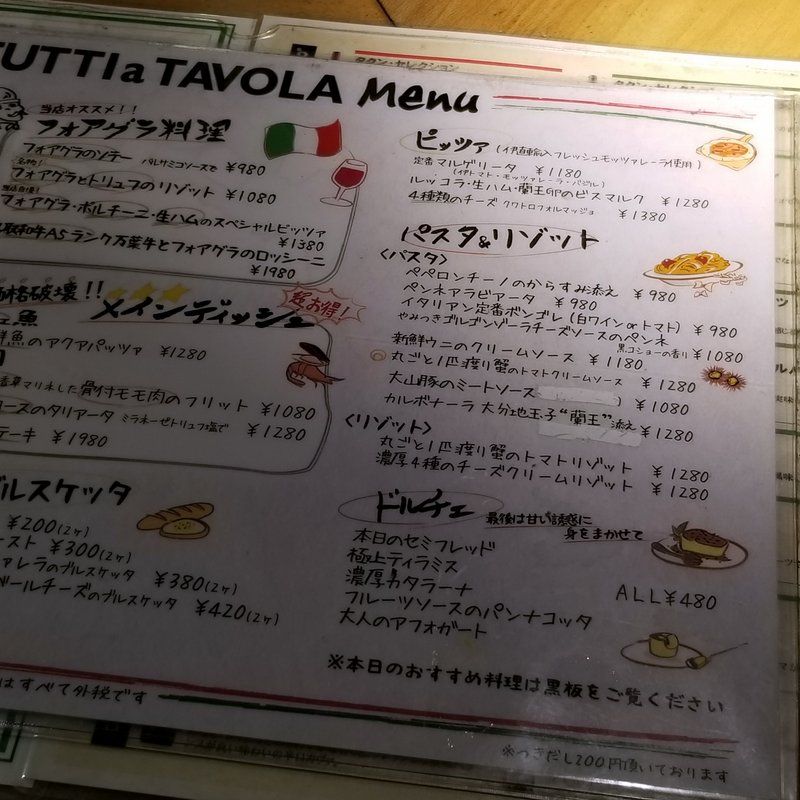 TUTTI a TAVOLA Menu
当店オススメ!!
フォアグラ料理
フォアグラのソテー バルサミコソースで ¥980
名物!
フォアグラとトリュフのリゾット ¥1080
当店自慢!
フォアグラ・ポルチーニ・生ハムのスペシャルピッツァ
¥1380
和牛A5ランク万葉牛とフォアグラのロッシーニ
¥1980
価格破壊!!
メインディッシュ
超お得!
魚
鮮魚のアクアパッツァ ¥1280
香草マリネした骨付モモ肉のフリット ¥1080
ロースのタリアータ ミラネーゼトリュフ塩で ¥1280
テーキ ¥1980
ブルスケッタ
¥200(2ヶ)
ースト ¥300(2ヶ)
ァレラのブルスケッタ ¥380(2ヶ)
ールチーズのブルスケッタ ¥420(2ヶ)
はすべて外税です
ピッツァ (伊直輸入フレッシュモッツァレーラ使用)
定番マルゲリータ ¥1180
(伊トマト・モッツァレーラ・バジル)
ルッコラ・生ハム・蘭王卵のビスマルク ¥1280
4種類のチーズ クワトロフォルマッジョ ¥1380
パスタ&リゾット
〈パスタ〉
ペペロンチーノのからすみ添え ¥980
ペンネアラビアータ ¥980
イタリアン定番ボンゴレ (白ワインorトマト) ¥980
やみつきゴルゴンゾーラチーズソースのペンネ
黒コショーの香り ¥1080
新鮮ウニのクリームソース ¥1180
丸ごと1匹渡り蟹のトマトクリームソース ¥1280
大山豚のミートソース ) ¥1080
カルボナーラ 大分地玉子"蘭王"添え
¥1280
〈リゾット〉
丸ごと1匹渡り蟹のトマトリゾット ¥1280
濃厚4種のチーズクリームリゾット ¥1280
ドルチェ
最後は甘い誘惑に
身をまかせて
本日のセミフレッド
極上ティラミス
濃厚カタラーナ
フルーツソースのパンナコッタ
大人のアフォガート
ALL¥480
※本日のおすすめ料理は黒板をご覧ください
※つきだし200円頂いております